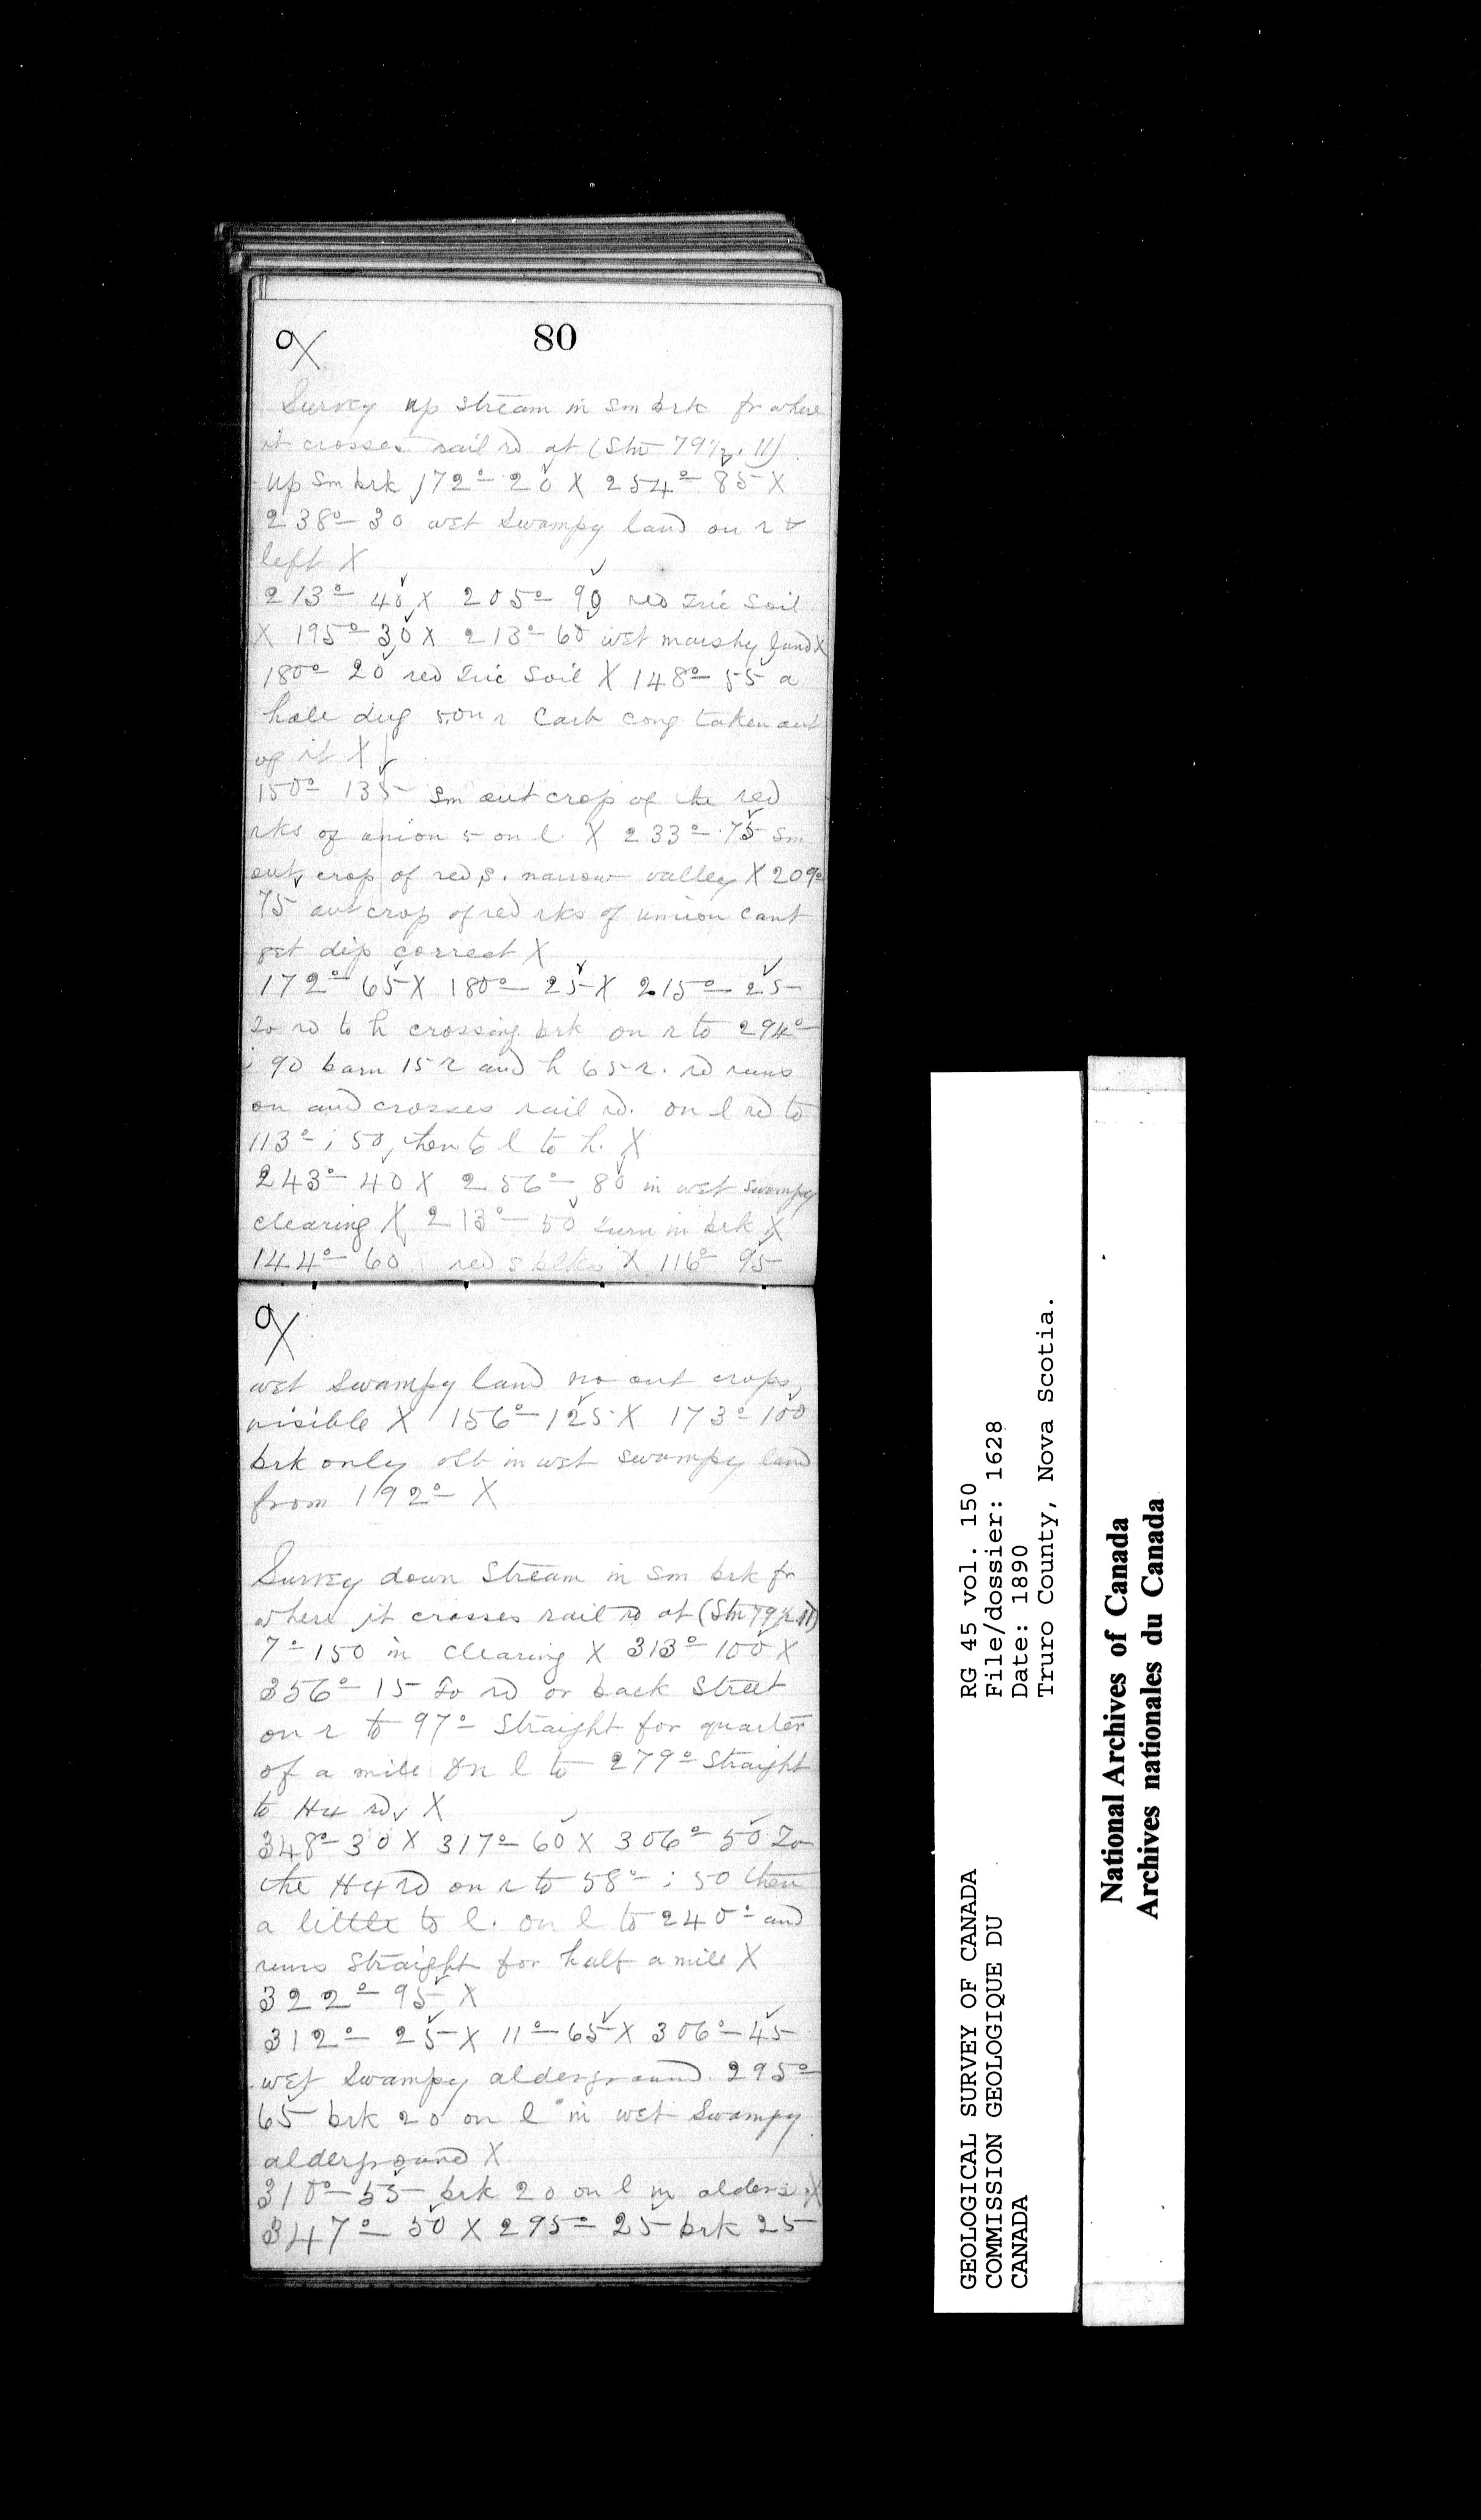 80
Survey up stream in sm brk fr where
it crosses rail rd at (Stn 79½, 11)
up sm brk 172°- 20 X 254°- 85 X
238°- 30 wet swampy land on r &
left X
213°- 40 X 205°- 90 red Tric soil
X 195°- 30 X 213°- 60 wet marshy land X
180°- 20 red Tric soil X 148°- 55 a
hole dug 5 on r Carb cong taken out
of it X
150°- 135 sm out crop of the red
rks of union 5 on l. X 233°- 75 sm
out crop of red s. narrow valley X 209°
75 out crop of red rks of union cant
get dip correct X
172°- 65 X 180°- 25 X 215°- 25
To rd to h crossing brk on r to 294°-
; 90 barn 15 r and h 65 r. rd runs
on and crosses rail rd. on l rd to
113°- ; 50, then to l to h. X
243°- 40 X 256°- 80 in wet swampy
clearing X 213°- 50 turn in brk X
144°- 60 red s blks X 116° 95
wet swampy land no out crops
visible X 156°- 125 X 173°- 100
brk only in wet swampy land
from 192°- X
Survey down stream in sm brk fr
where it crosses rail rd at (Stn 79½ 11)
7°- 150 in clearing X 313°- 100 X
356°- 15 To rd or back street
on r to 97°- straight for quarter
of a mile on l to 279°- straight
to H4 rd X
348°- 30 X 317°- 60 X 306°- 50 To
the H4 rd on r to 58°- ; 50 then
a little to l. on l to 240°- and
runs straight for half a mile X
322°- 95 X
312°- 25 X 11°- 65 X 306°- 45
wet swampy alderground 295°-
65 brk 20 on l in wet swampy
alderground X
310°- 55 brk 20 on l in alders X
347°- 50 X 295°- 25 brk 25
GEOLOGICAL SURVEY OF CANADA
COMMISSION GEOLOGIQUE DU
CANADA
RG 45 vol. 150
File/dossier: 1628
Date: 1890
Truro County, Nova Scotia.
National Archives of Canada
Archives nationales du Canada